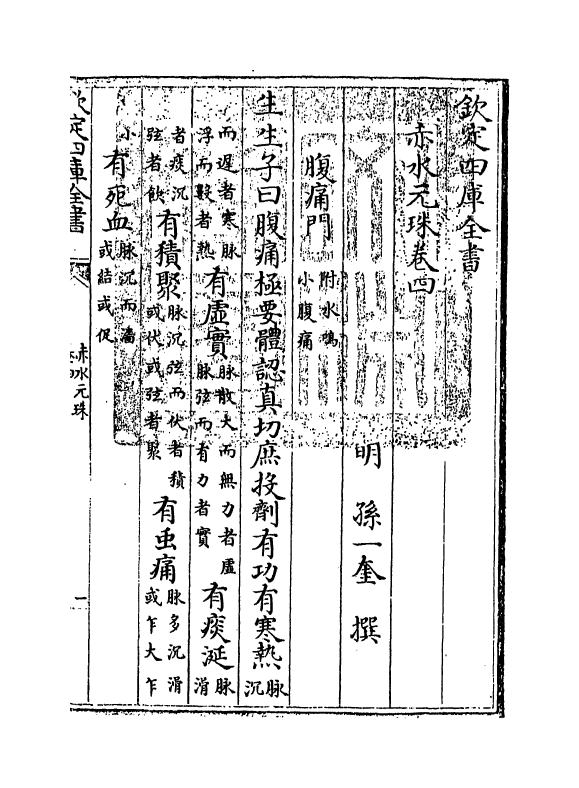 欽定四庫全書
赤水元珠卷四
明 孫一奎 撰
腹痛門附水鳴小腹痛
生生子曰腹痛極要體認真切庶投劑有功有寒熱脉沉
而遲者寒脉浮而數者熱有虛實脉散大而無力者虛脉弦而有力者實有痰涎脉滑
者痰沉弦者飲有積聚脉沉弦而伏者積或伏或弦者聚有虫痛脉多沉滑或乍大乍
小有死血脉沉而濇或結或促
欽定四庫全書
赤水元珠
一